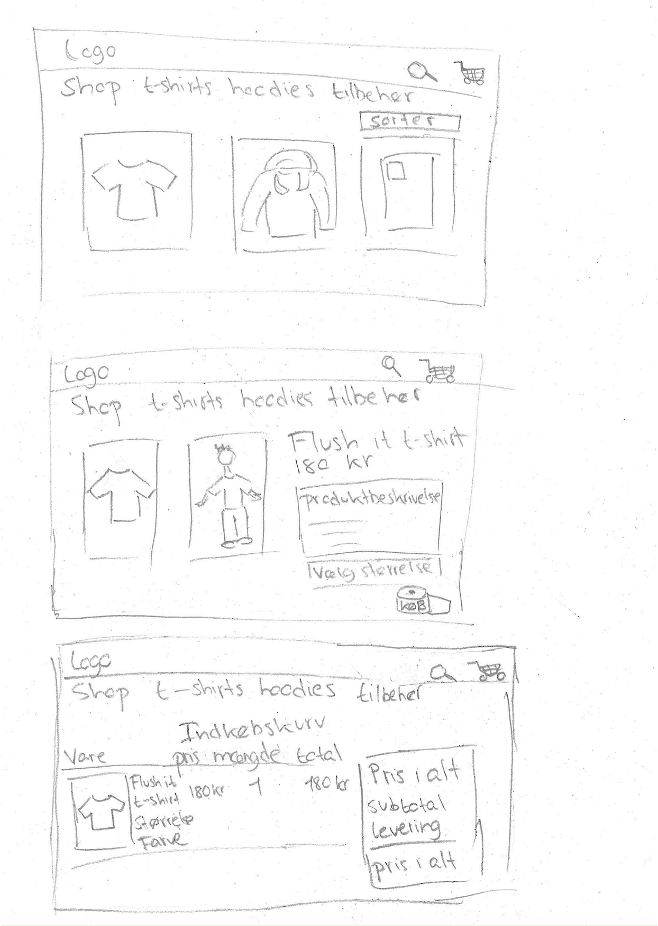 Logo
Shop t-shirts hoodies tilbehør
sorter
Logo
Shop t-shirts hoodies tilbehør
Flush it t-shirt
180 kr
produktbeskrivelse
Vælg størrelse
KØB
Logo
Shop t-shirts hoodies tilbehør
Indkøbskurv
Vare pris mængde total
Flush it
t-shirt
Størrelse
Farve
180 kr 1 180 kr
Pris i alt
subtotal
levering
pris i alt